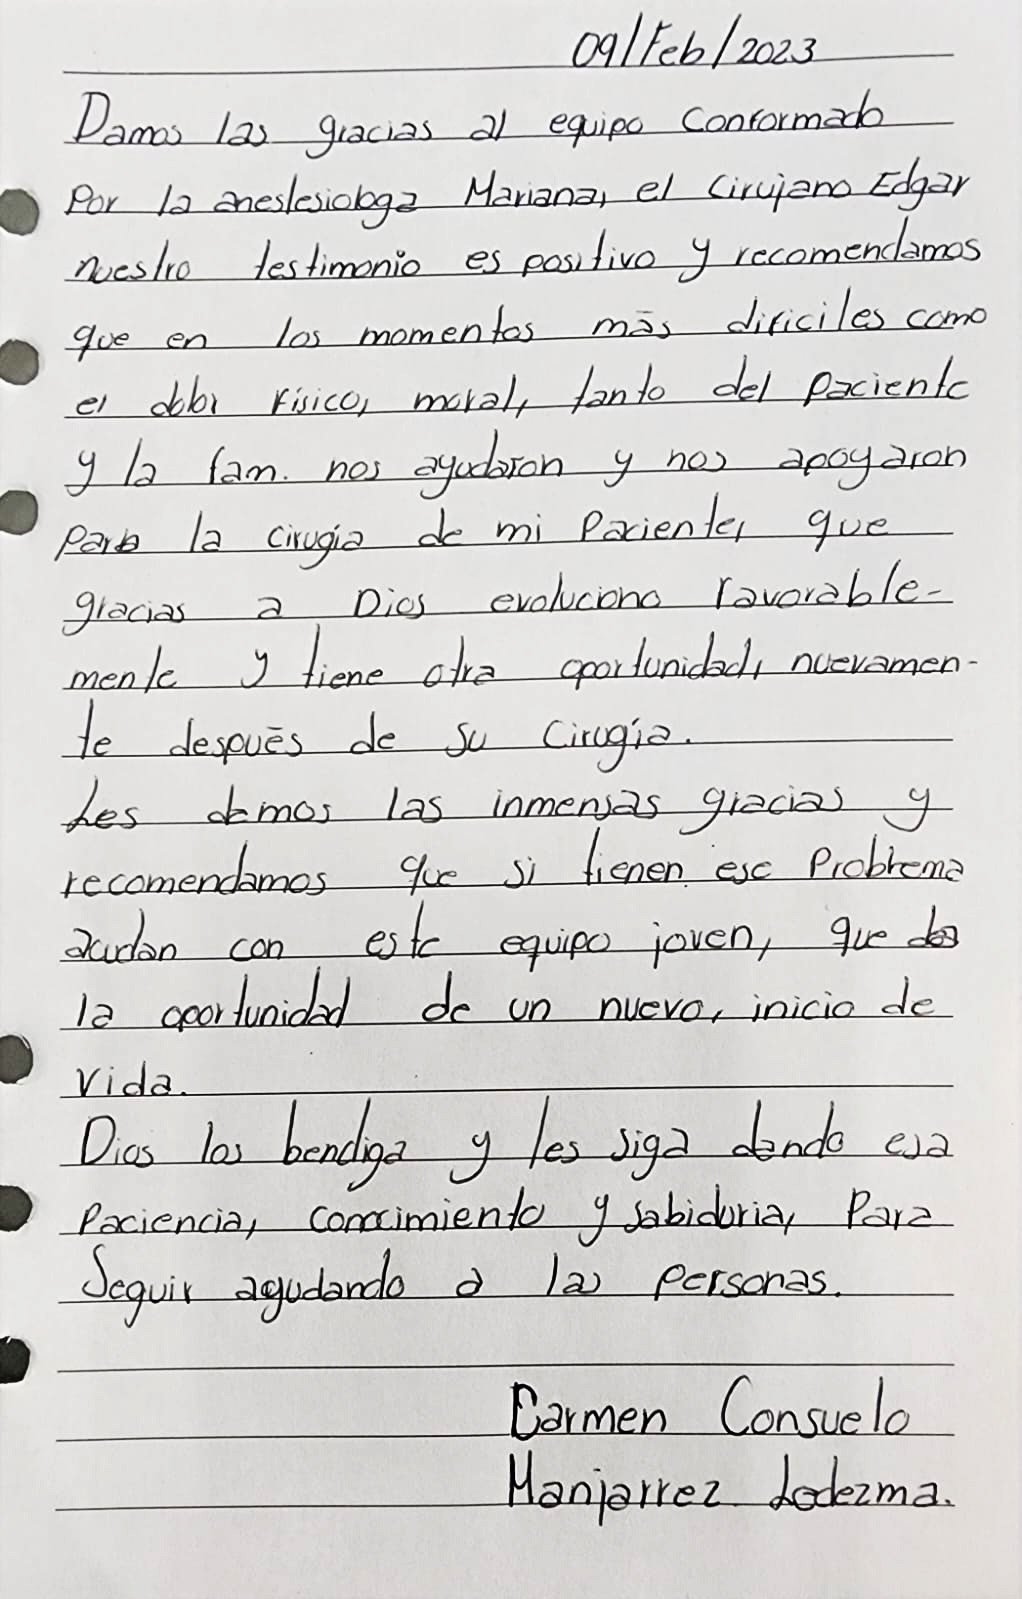 09/Feb/2023
Damos las gracias al equipo Conformado
Por la anestesiologa Mariana, el Cirujano Edgar
nuestro testimonio es positivo y recomendamos
que en los momentos más dificiles como
el dolor físico, moral, tanto del paciente
y la fam. nos ayudaron y nos apoyaron
para la cirugía de mi Paciente, que
gracias a Dios evoluciono favorable-
mente y tiene otra oportunidad, nuevamen-
te después de su Cirugía.
Les damos las inmensas gracias y
recomendamos que si tienen ese Problema
acudan con este equipo joven, que da
la oportunidad de un nuevo, inicio de
vida.
Dios los bendiga y les siga dando esa
Paciencia, conocimiento y sabiduria, Para
Seguir ayudando a las personas.
Carmen Consuelo
Manjarrez Ledezma.